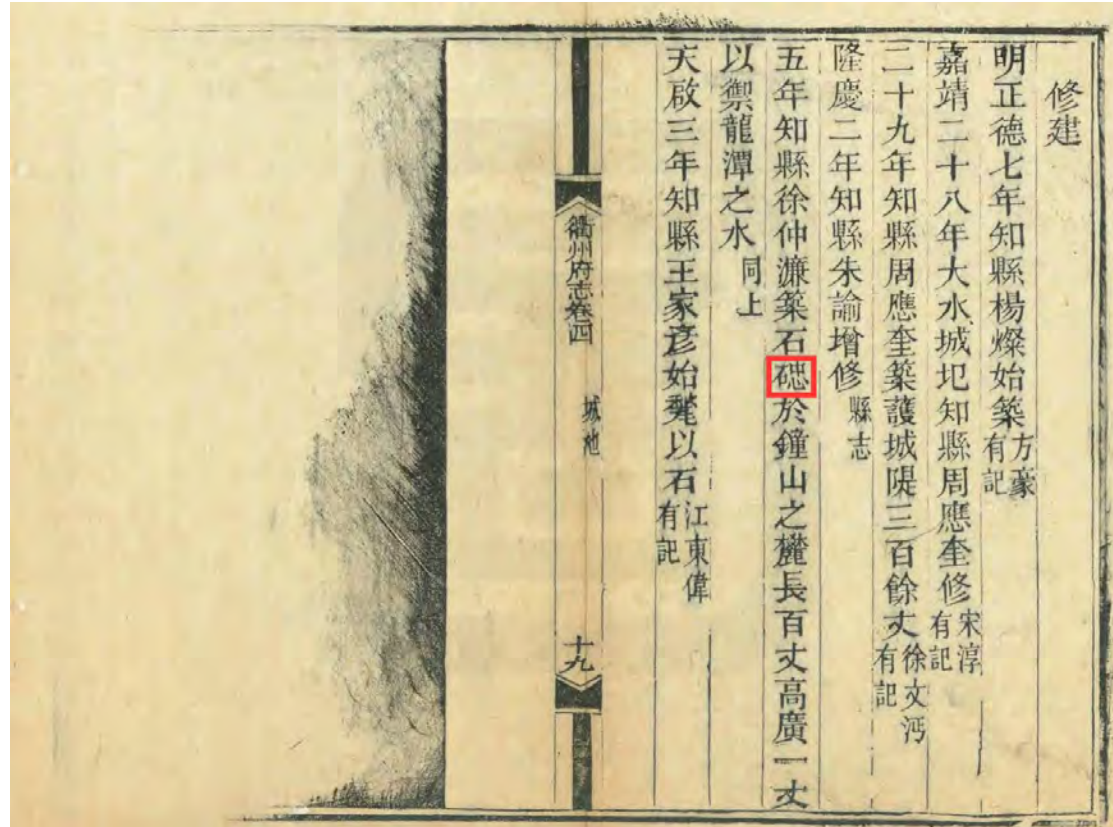 修建
明正德七年知縣楊燦始築方豪有記
嘉靖二十八年大水城圯知縣周應奎修宋淳有記
二十九年知縣周應奎築護城隄三百餘丈徐文沔有記
隆慶二年知縣朱諭增修縣志
五年知縣徐仲濂築石於鐘山之麓長百丈高廣一丈
以禦龍潭之水同上
天啟三年知縣王家彥始甃以石江東偉有記
衢州府志卷四 城池 十九